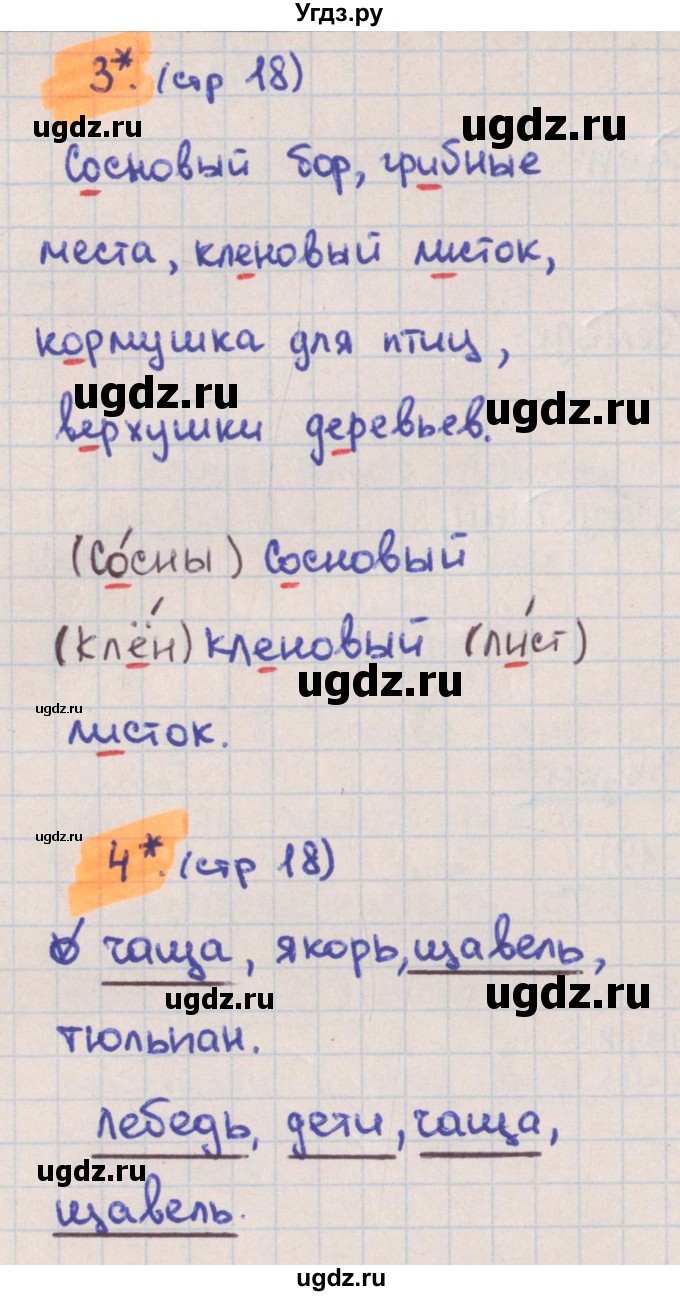 Угдз.ру
3*. (стр 18)
ugdz.ru ugdz.ru
Сосновый бор, грибные
места, кленовый листок,
кормушка для птиц,
ugdz.ru ugdz.ru
верхушки деревьев.
(Со́сны) Сосновый
(Клён) кленовый (ли́ст)
ugdz.ru ugdz.ru
листок.
ugdz.ru
4*. (стр 18)
чаща, якорь, щавель,
ugdz.ru ugdz.ru
тюльпан.
лебедь, дети, чаща,
ugdz.ru
щавель.
ugdz.ru